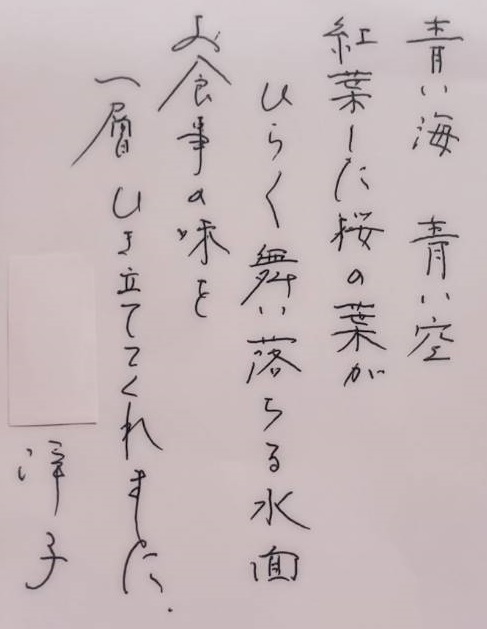 青い海 青い空
紅葉した桜の葉が
ひらく舞い落ちる水面
お食事の味を
一層ひき立ててくれました.
淳子